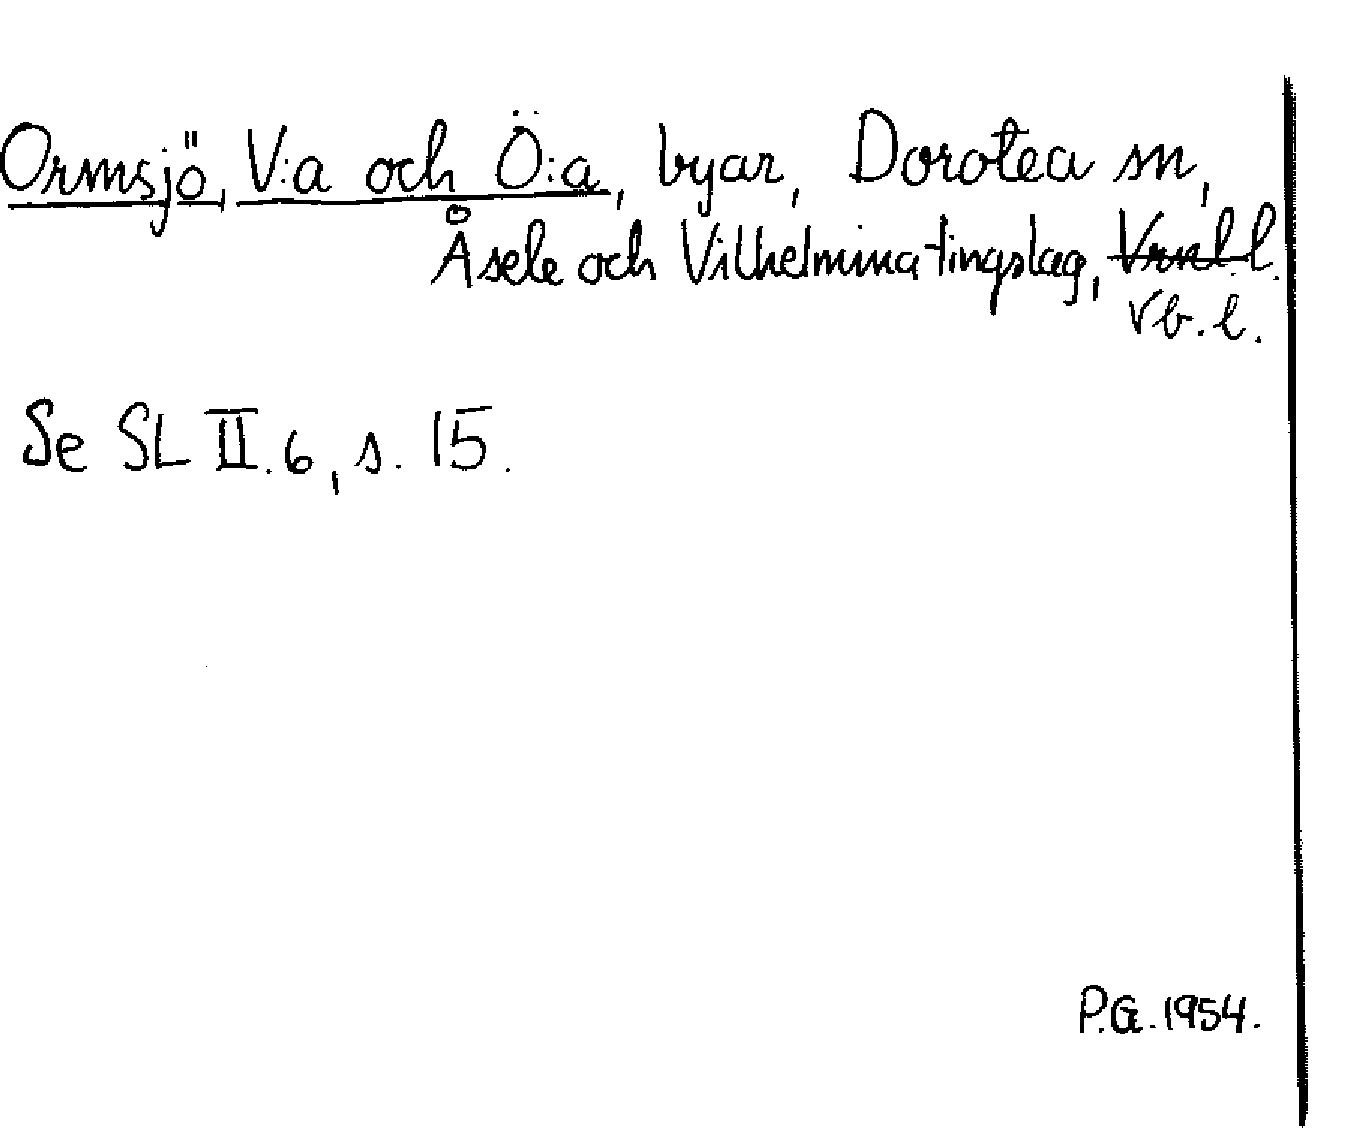 Ormsjö, V:a och Ö:a, byar, Dorotea sn,
Åsele och Vilhelmina tingslag, Vrml. l.
Vb. l.
Se SL II.6, s. 15.
P.G. 1954.